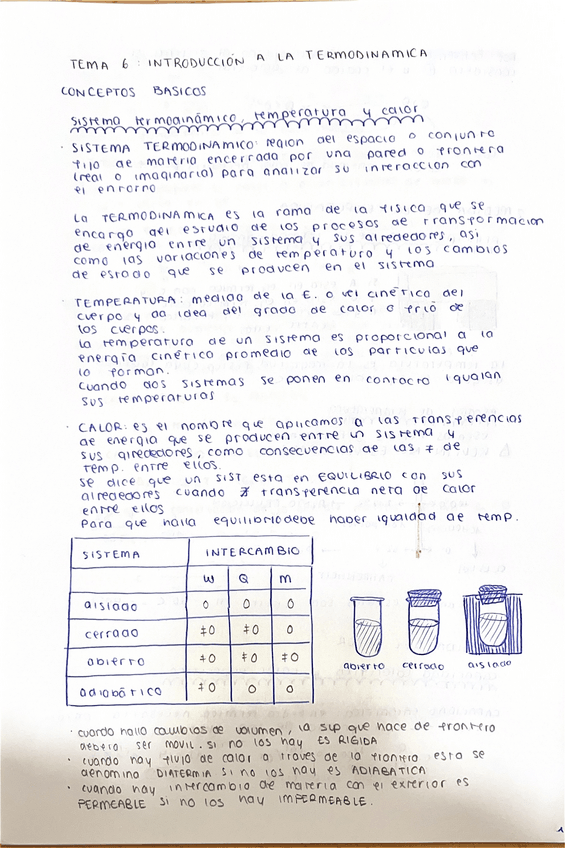 TEMA 6 : INTRODUCCIÓN A LA TERMODINAMICA
CONCEPTOS BASICOS
Sistema termodinámico, temperatura y calor
· SISTEMA TERMODINAMICO: region del espacio o conjunto
fijo de materia encerrada por una pared o frontera
(real o imaginaria) para analizar su interaccion con
el entorno
La TERMODINAMICA es la rama de la fisica que se
encarga del estudio de los procesos de transformacion
de energia entre un sistema y sus alrededores, asi
como las variaciones de temperatura y los cambios
de estado que se producen en el sistema
· TEMPERATURA: medida de la E. o vel cinética del
cuerpo y da idea del grado de calor o frio de
los cuerpos.
La temperatura de un sistema es proporcional a la
energia cinética promedio de las particulas que
lo forman.
Cuando dos sistemas se ponen en contacto igualan
sus temperaturas
· CALOR: es el nombre que aplicamos a las transferencias
de energia que se producen entre un sistema y
sus alrededores, como consecuencias de las ≠ de
temp. entre ellos.
Se dice que un SIST esta en EQUILIBRIO con sus
alrededores cuando ∄ transferencia neta de calor
entre ellos
Para que halla equilibrio debe haber igualdad de temp.
SISTEMA INTERCAMBIO
W Q M
aislado 0 0 0
cerrado ≠0 ≠0 0
abierto ≠0 ≠0 ≠0
adiabático ≠0 0 0
abierto cerrado aislado
· cuando halla cambios de volumen, la sup que hace de frontera
debera ser MOVIL. Si no los hay ES RIGIDA
· cuando hay flujo de calor a traves de la frontera esta se
denomina DIATERMIA si no los hay es ADIABATICA
· cuando hay intercambio de materia con el exterior es
PERMEABLE si no los hay IMPERMEABLE.
1